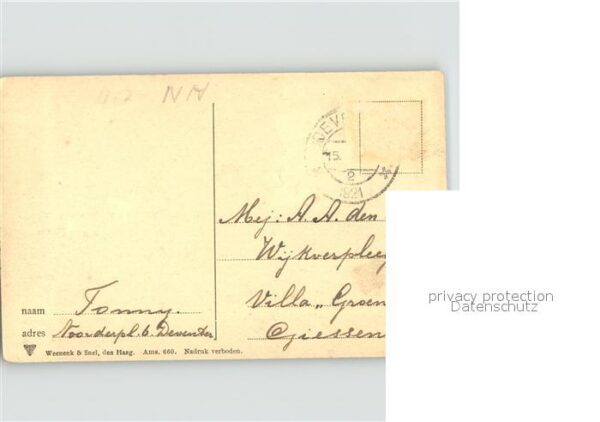 NH
DEVE
15.
2
1921
Mej: A. A. den
Wijkverpleeg
Villa „Groen
Giessen
naam Tonny.
adres Noorderpl. 6. Deventer
Weenenk & Snel, den Haag. Ams. 660. Nadruk verboden.
privacy protection
Datenschutz